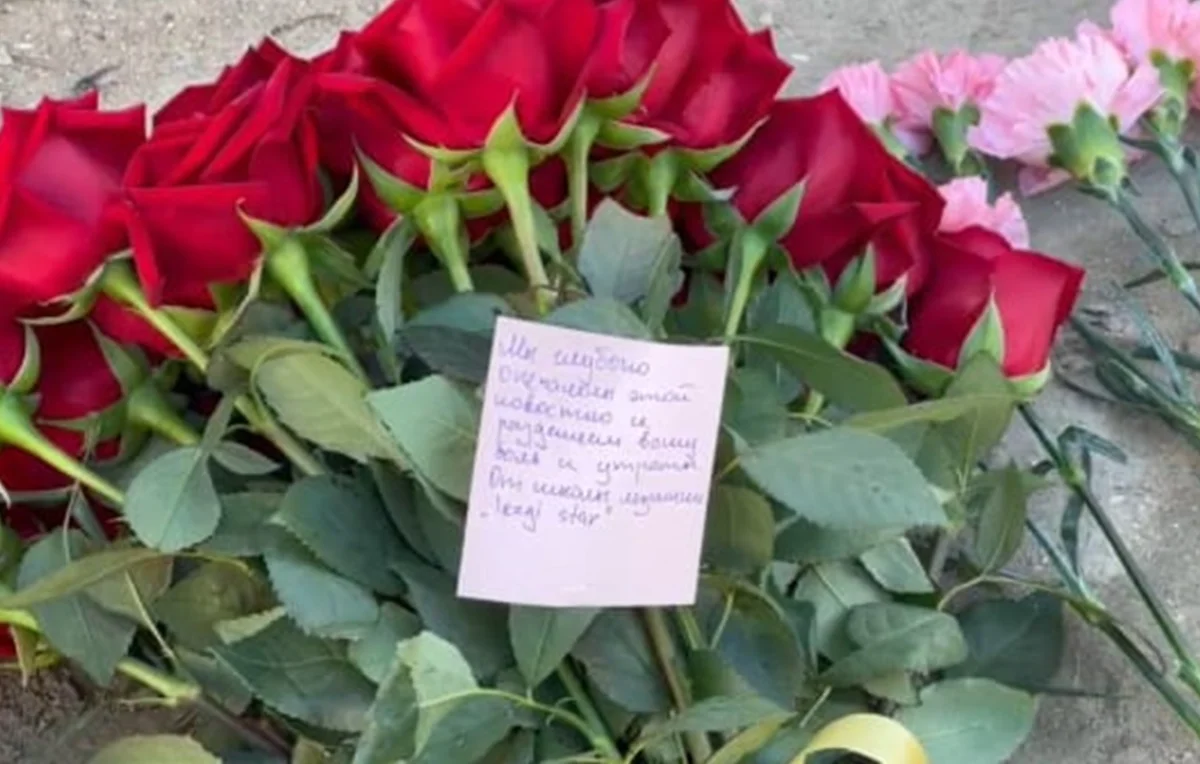 Мы глубоко
опечалены этой
новостью и
разделяем вашу
боль и утрату.
От школы музыки
star"